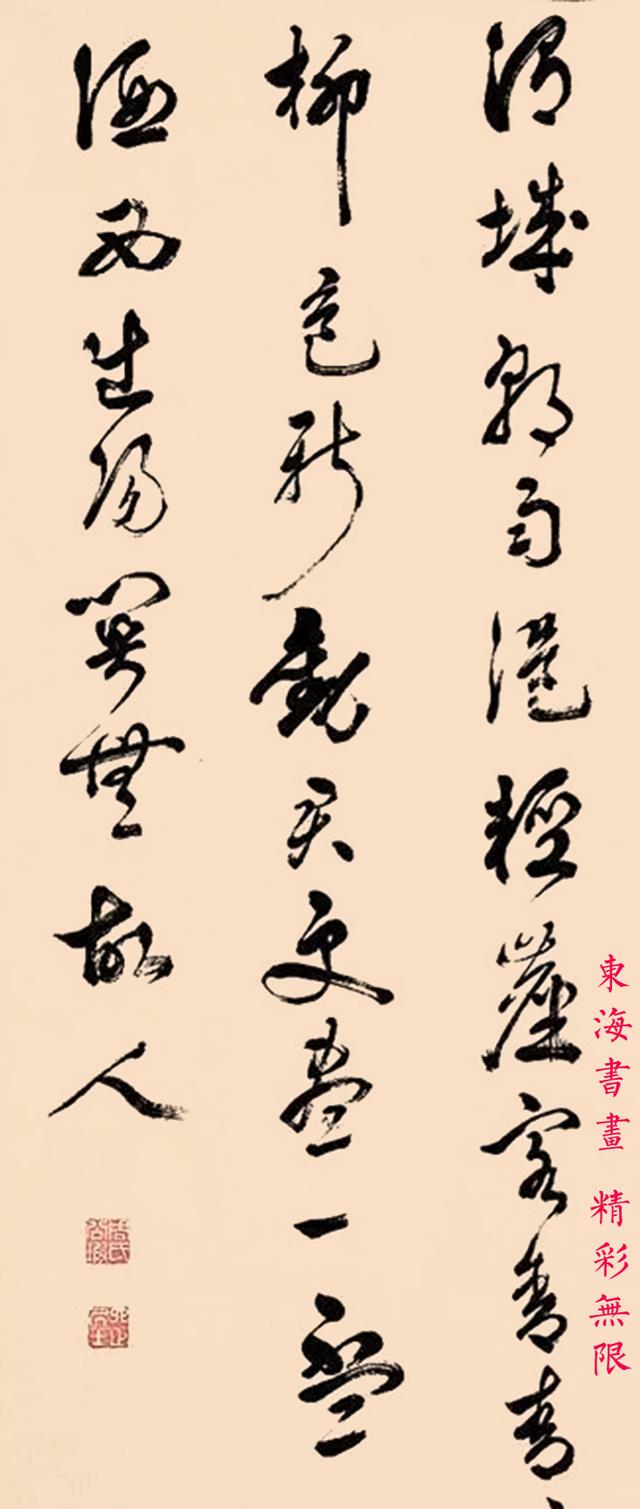 渭城朝雨浥輕塵客舍青
柳色新勸君更盡一盃
酒西出陽關無故人
東海書畫 精彩無限